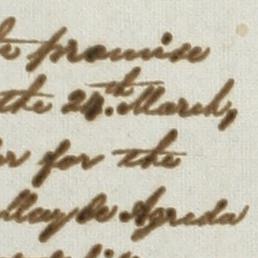 promise
the 24th. March,
for the
May be Agreda